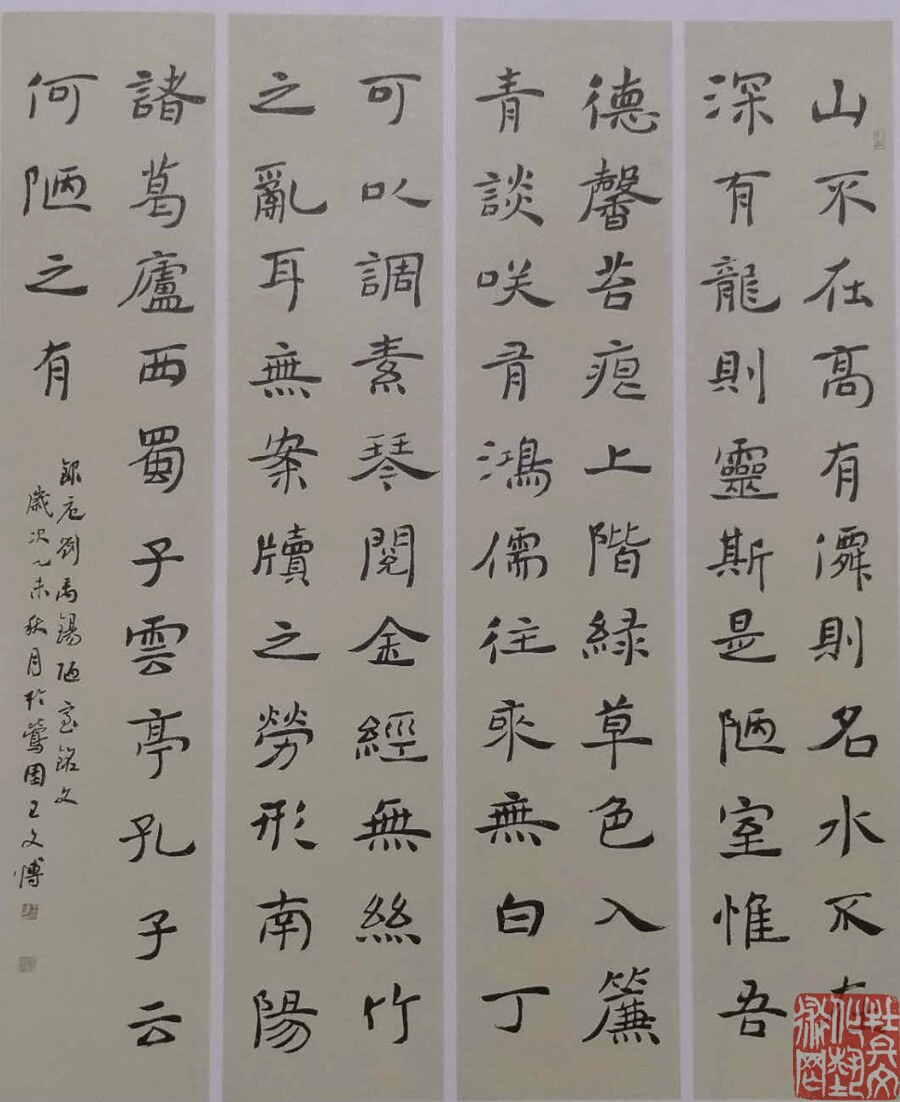 山不在高有僊則名水不在
深有龍則靈斯是陋室惟吾
德馨苔痕上階緑草色入簾
青談咲有鴻儒往來無白丁
可以調素琴閱金經無絲竹
之亂耳無案牘之勞形南陽
諸葛廬西蜀子雲亭孔子云
何陋之有
録唐劉禹錫陋室銘文
歲次乙未秋月於鶯園王文博